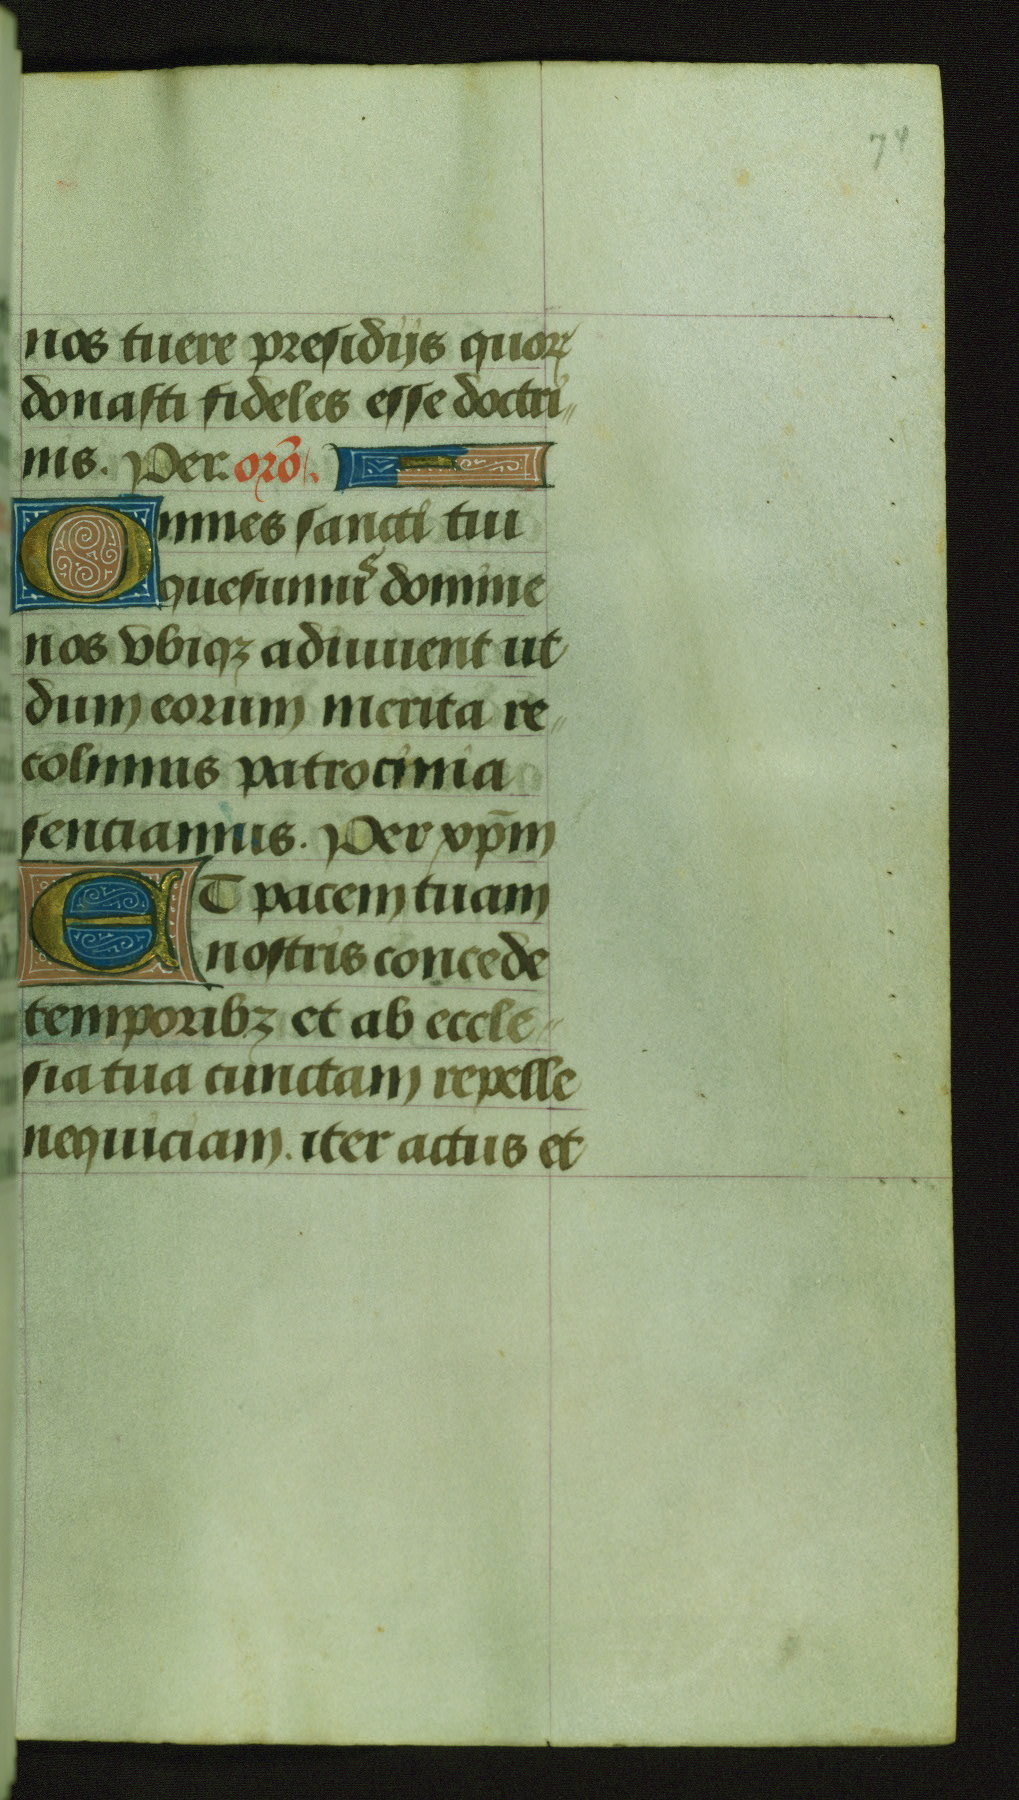 74
nos tuere presidijs quorꝝ
donasti fideles esse doctri
nis. Per. orõ.
Omnes sancti tui
quesumus domine
nos vbiqꝫ adiuuent ut
dum eorum merita re
colimus patrocinia
senciamus. Per xp̄m
ET pacem tuam
nostris concede
temporibꝫ et ab eccle
sia tua cunctam repelle
nequiciam. iter actus et